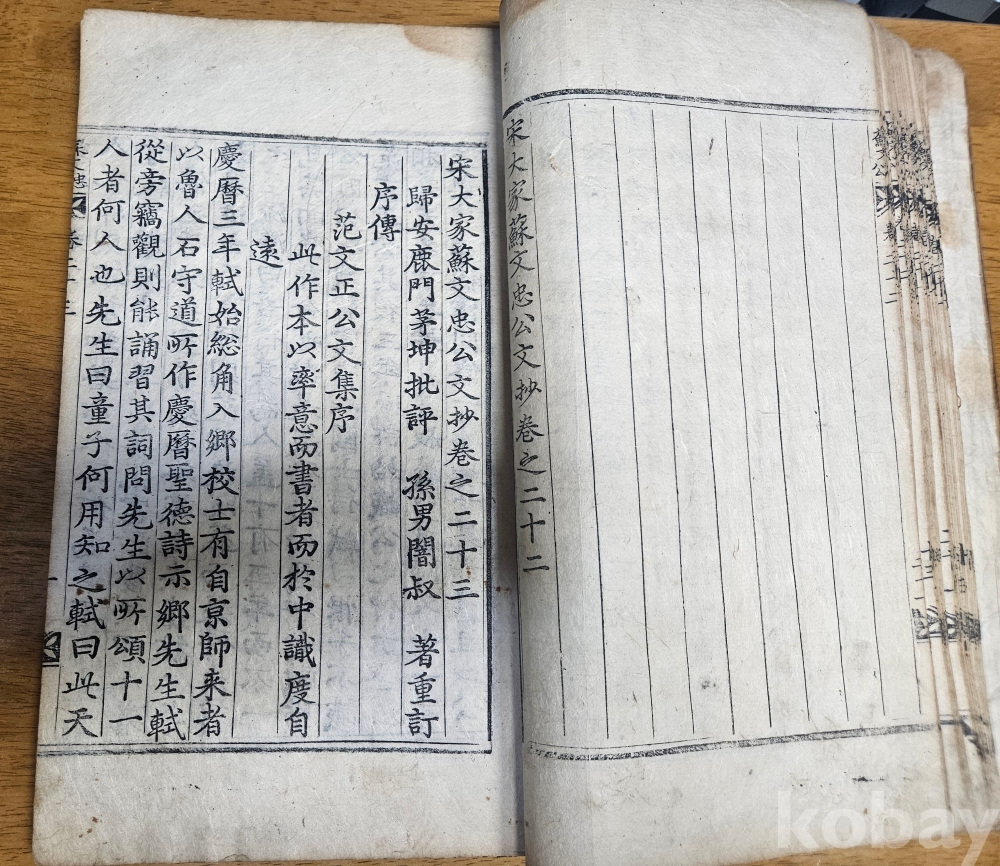 宋大家蘇文忠公文抄卷之二十二
宋大家蘇文忠公文抄卷之二十三
歸安鹿門茅坤批評 孫男闇叔 著重訂
序傳
范文正公文集序
此作本以率意而書者而於中識度自
遠
慶曆三年軾始総角入鄉校士有自京師来者
以魯人石守道所作慶曆聖德詩示鄉先生軾
從旁竊觀則能誦習其詞問先生以所頌十一
人者何人也先生曰童子何用知之軾曰此天
kobay